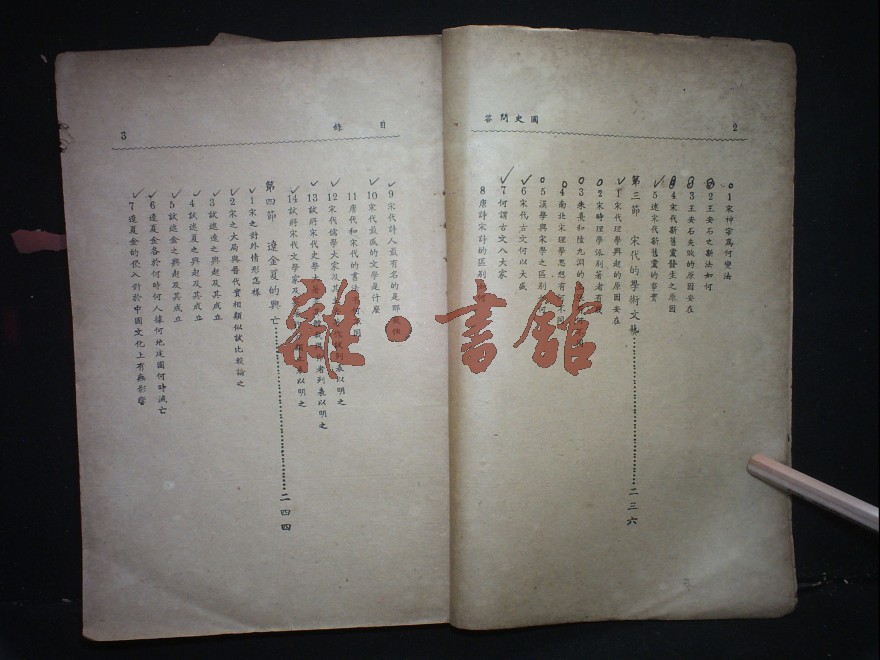 國史問答
2
1宋神宗爲何變法
2王安石之新法如何
3王安石失敗的原因安在
4宋代新舊黨發生之原因
5述宋代新舊黨的事實
第三節 宋代的學術文藝……二三六
1宋代理學興起的原因安在
2宋時理學派別著者有
3朱熹和陸九淵的
4南北宋理學思想有何不同
5漢學與宋學之區別
6宋代古文何以大盛
7何謂古文八大家
8唐詩宋詩的區別
目錄
3
9宋代詩人最有名的是那
10宋代最盛的文學是什麼
11唐代和宋代的書法
12宋代儒學大家及其
列表以明之
13試將宋代史學大
者列表以明之
14試將宋代文學家及
表以明之
第四節 遼金夏的興亡……二四四
1宋之對外情形怎樣
2宋之大局與晉代實相類似試比較論之
3試述遼之興起及其成立
4試述夏之興起及其成立
5試述金之興起及其成立
6遼夏金各於何時何人據何地建國何時滅亡
7遼夏金的侵入對於中國文化上有無影響
雜·書館